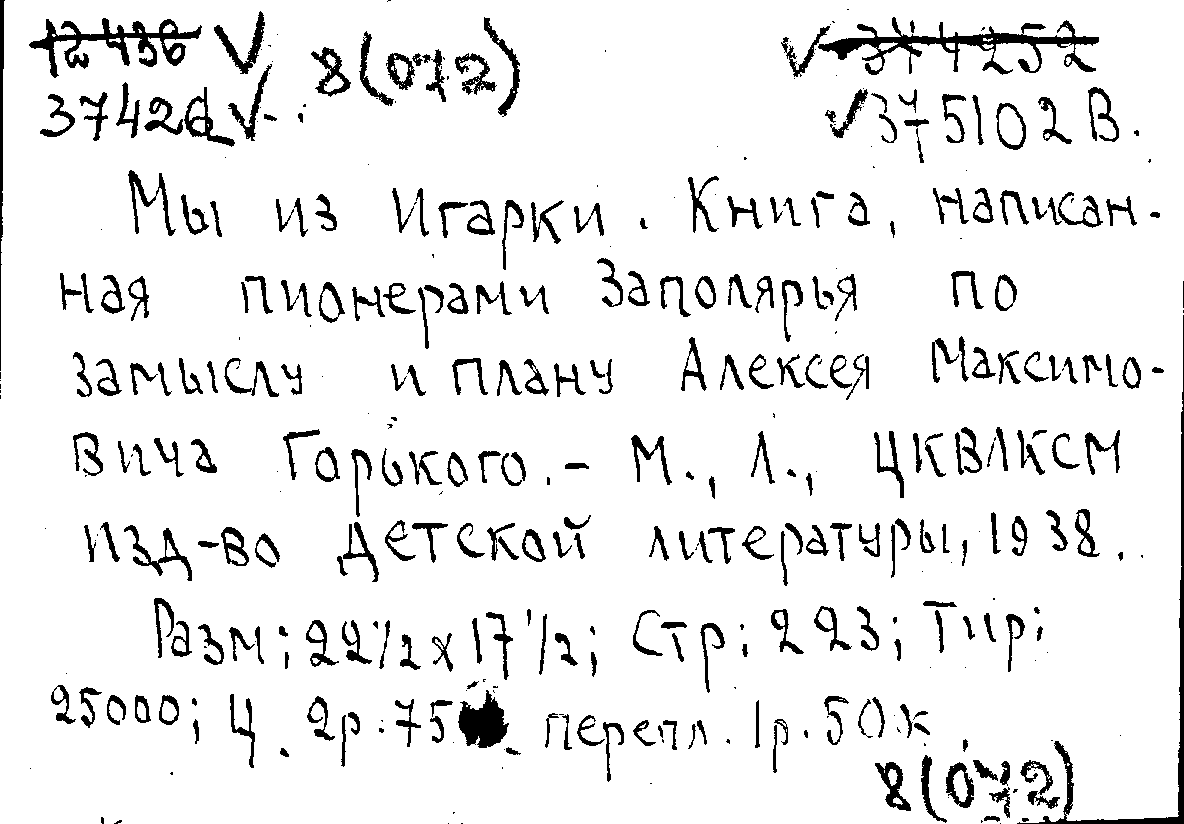 12436 √ 8(072) √ 374252
37426 √ √ 375102 В.
Мы из Игарки. Книга, написан-
ная пионерами Заполярья по
замыслу и плану Алексея Максимо-
вича Горького. - М., Л., ЦКВЛКСМ
изд-во детской литературы, 1938.
Разм; 22 1/2 х 17 1/2; Стр; 223; Тир;
25000; Ц. 2р. 75 перепл. 1р. 50к
8(072)